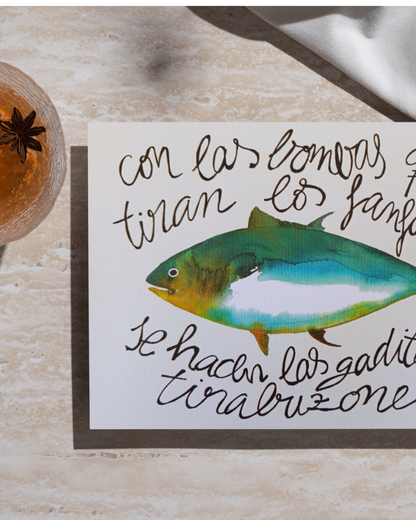 con las bombas
tiran los fanfa
Se hacen las gadita
tirabuzone